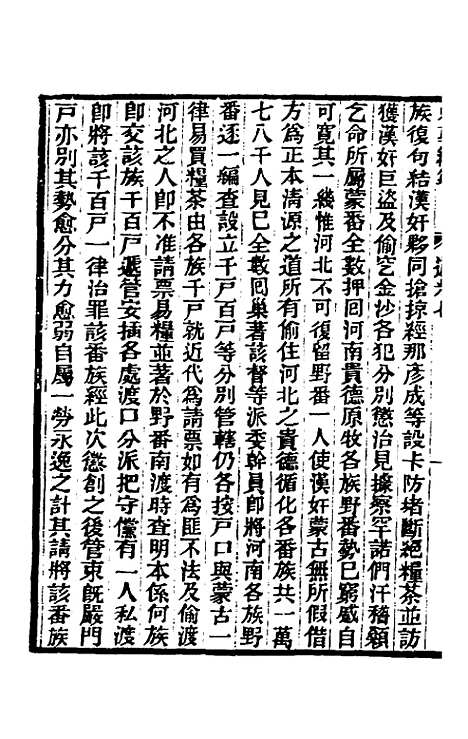 族復句結漢奸夥同搶掠經那彥成等設卡防堵斷絕糧茶並訪
獲漢奸巨盜及偷穵金抄各犯分別懲治見據察罕諾們汗稽顙
乞命所屬蒙番全數押回河南貴德原牧各族野番勢已窮感自
可寬其一綫惟河北不可復留野番一人使漢奸蒙古無所假借
方爲正本清源之道所有偷住河北之貴德循化各番族共一萬
七八千人見已全數囘巢著該督等派委幹員卽將河南各族野
番逐一編查設立千戸百戸等分別管轄仍各按戸口與蒙古一
律易買糧茶由各族千戸就近代爲請票如有爲匪不法及偷渡
河北之人卽不准請票易糧並著於野番南渡時查明本係何族
卽交該族千百戸遞管安插各處渡口分派把守儻有一人私渡
卽將該千百戸一律治罪該番族經此次懲創之後管束旣嚴門
戸亦別其勢愈分其力愈弱自屬一勞永逸之計其請將該番族